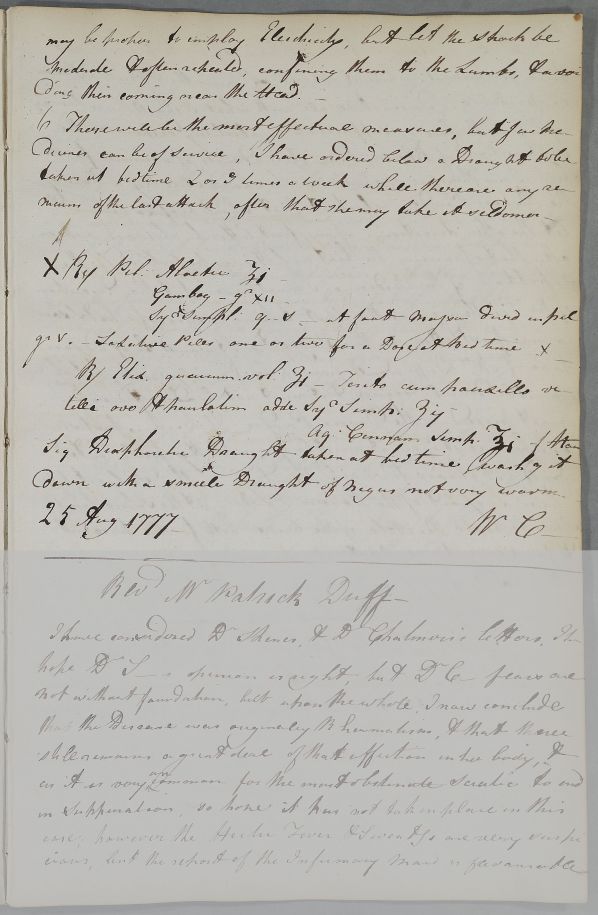 may be proper to employ Electricity, but let the shock be
moderate & often repeated, confining them to the Lumbs, & avoi
ding their coming near the Head. —
6 These will be the most effectual measures, but few Me-
dicines can be of service, I have ordered below a Draught to be
taken at bedtime 2 or 3 times a week while there are any re-
mains of the last attack, after that she may take it seldomer —
X Rx Pil: Aloetic ʒi
Gambog — gr XII
Syr Simpl. q — s — ut fiat Massa divid in pil
gr v. — Laxative Pills one or two for a Dose at bed time X
Rx Elix. guaiacum vol. ʒi — Terito cum pauxillo vi-
telli ovo & paulatim adde Syr Simp: ʒij
Aq: Cinnam simp. ʒi — ft Hau
Sig Diaphoretic Draught taken at bed time wash g it
down with a small Draught of Negus not very warm
25 Aug 1777 W C
Revd Mr Patrick Duff —
I have considered Dr Skenes, & Dr Chalmers's letters, I
hope Dr S — s opinion is right, but Dr C — fears are
not without foundation, but upon the whole I now conclude
that the Disease was originally Rheumatism, & that there
still remains a great deal of that affection in her body, &
as it is very uncommon for the most obstinate Sciatic to end
in suppuration, so hope it has not taken place in this
case, however the Hectic Fever & Sweats are very suspi
cious, but the report of the Infirmary Maid is favourable